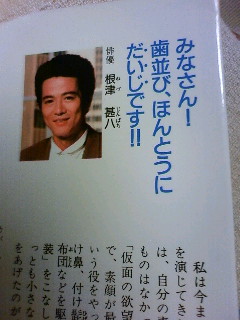 みなさん!
歯並び、ほんとうに
だいじです!!
俳優 根津甚八
ねづ じんぱち
私は今ま
を演じてき
は、自分の素
ものはなか
「仮面の欲望
で、素顔が最
いう役をやっ
け鼻、付け髭
布団などを駆
装」をこなし
っとも小さな
をあげたのが